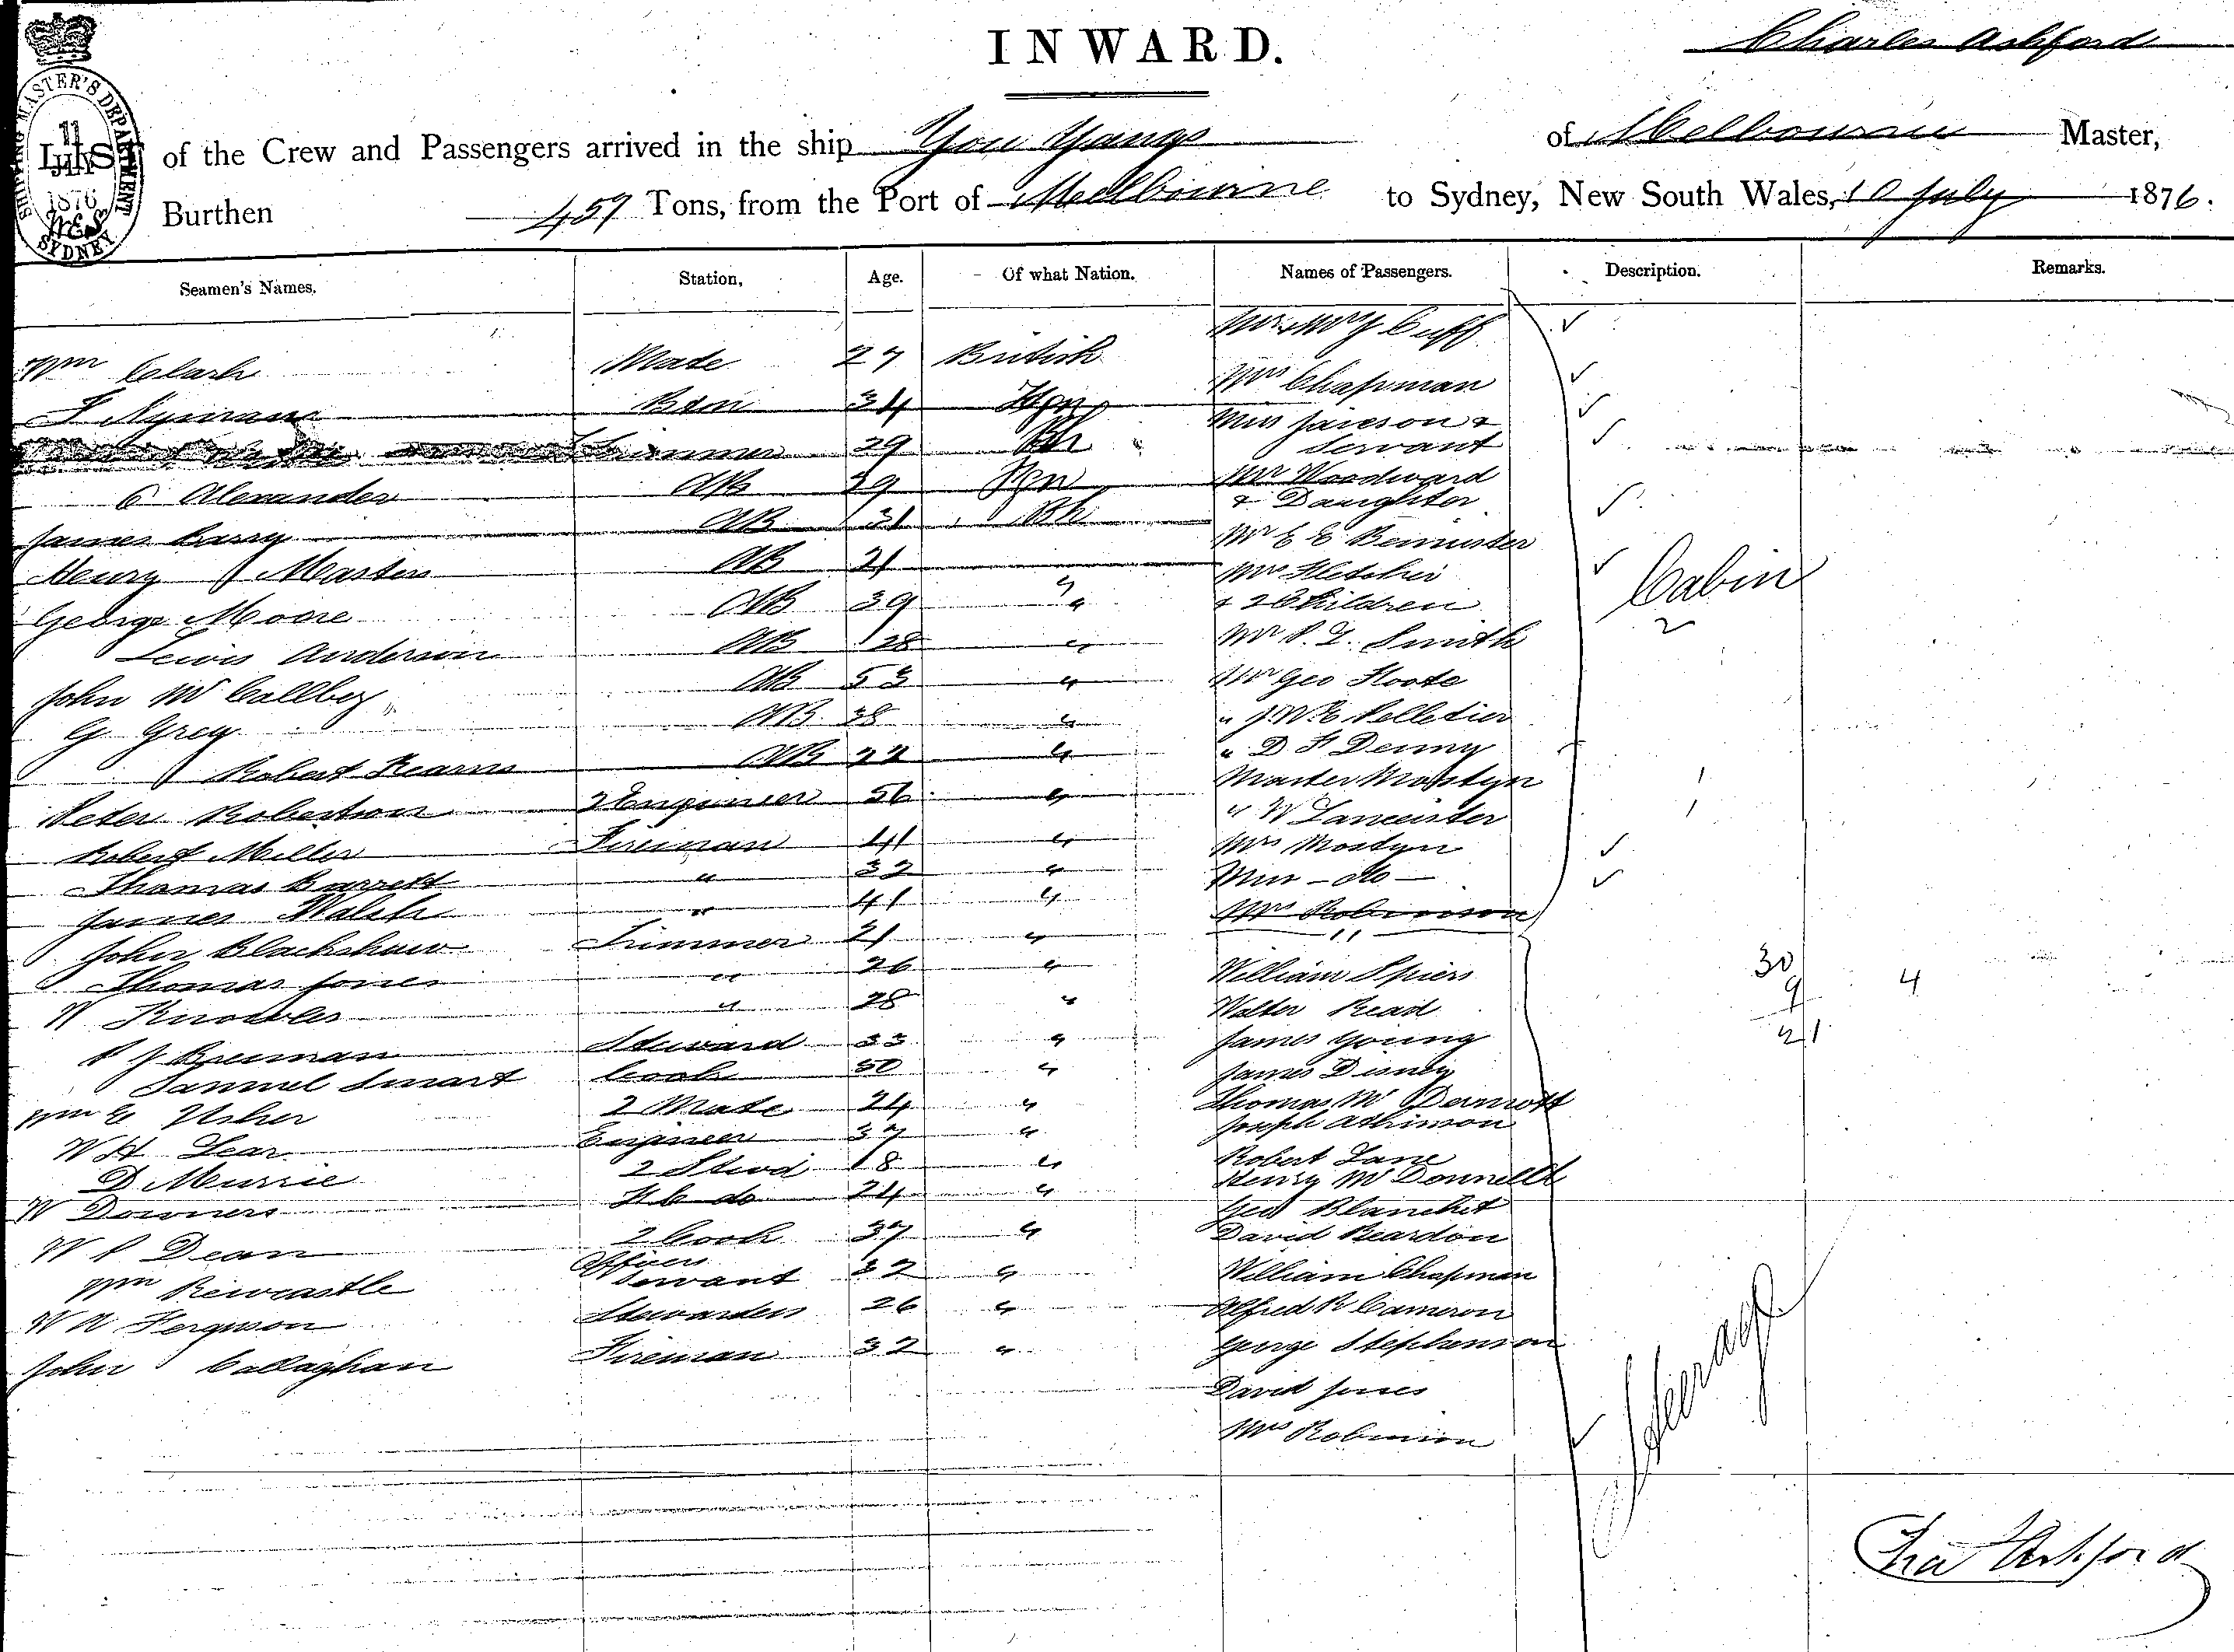 INWARD.
Charles Ashford
SHIPPING MASTER'S DEPARTMENT
11
JULY
1876
SYDNEY
LIST of the Crew and Passengers arrived in the ship You Yangs of Melbourne Master,
Burthen 457 Tons, from the Port of Melbourne to Sydney, New South Wales, 10 July 1876.
Seamen's Names. Station, Age. Of what Nation. Names of Passengers. Description. Remarks.
Cuff
Wm Clark Mate 27 British
Mrs Chapman
34
Miss Jameson &
Trimmer 29 Bh Servant
Alexander AB 39 Mr Woodward
& Daughter
James Barry AB 31 Bh
Mr E E
Henry Masters AB 21
Mrs Fletcher
George Moore AB 39 " & 2 Children
Lewis Anderson AB 28 " Mr P. I. Smith
John AB 53 " Mr Geo Foote
G Grey AB 38 " " J. W. E Pelletier
Robert Kearns AB 22 " " D F Denny
Master Mostyn
Peter Robertson 2 Engineer 56 " " W
Robert Miller Fireman 41 " Mrs Mostyn
Thomas Barrett " 32 " Miss - do -
James Walsh " 41 " Mrs Robinson
Cabin
John Blackshaw Trimmer 21 "
Thomas Jones " 26 " William Spiers
30
9
21
4
W Knowles " 28 " Walter Read
P J Brennan Steward 33 " James Young
Samuel Smart Cook 50 " James
Wm G Usher 2 Mate 24 " Thomas McDermott
Joseph
W H Lear Engineer 37 "
Robert Lane
D Murrie 2 Stwd 18 " Henry McDonnell
W Downers do 24 " Geo Blanchet
W P Dean 2 Cook 37 " David Reardon
Wm Rewcastle Officers Servant 32 " William Chapman
W A Ferguson Stewardess 26 " Alfred R Cameron
John Callaghan Fireman 32 " George Stephenson
David Jones
Mrs Robinson
Steerage
Chas Ashford